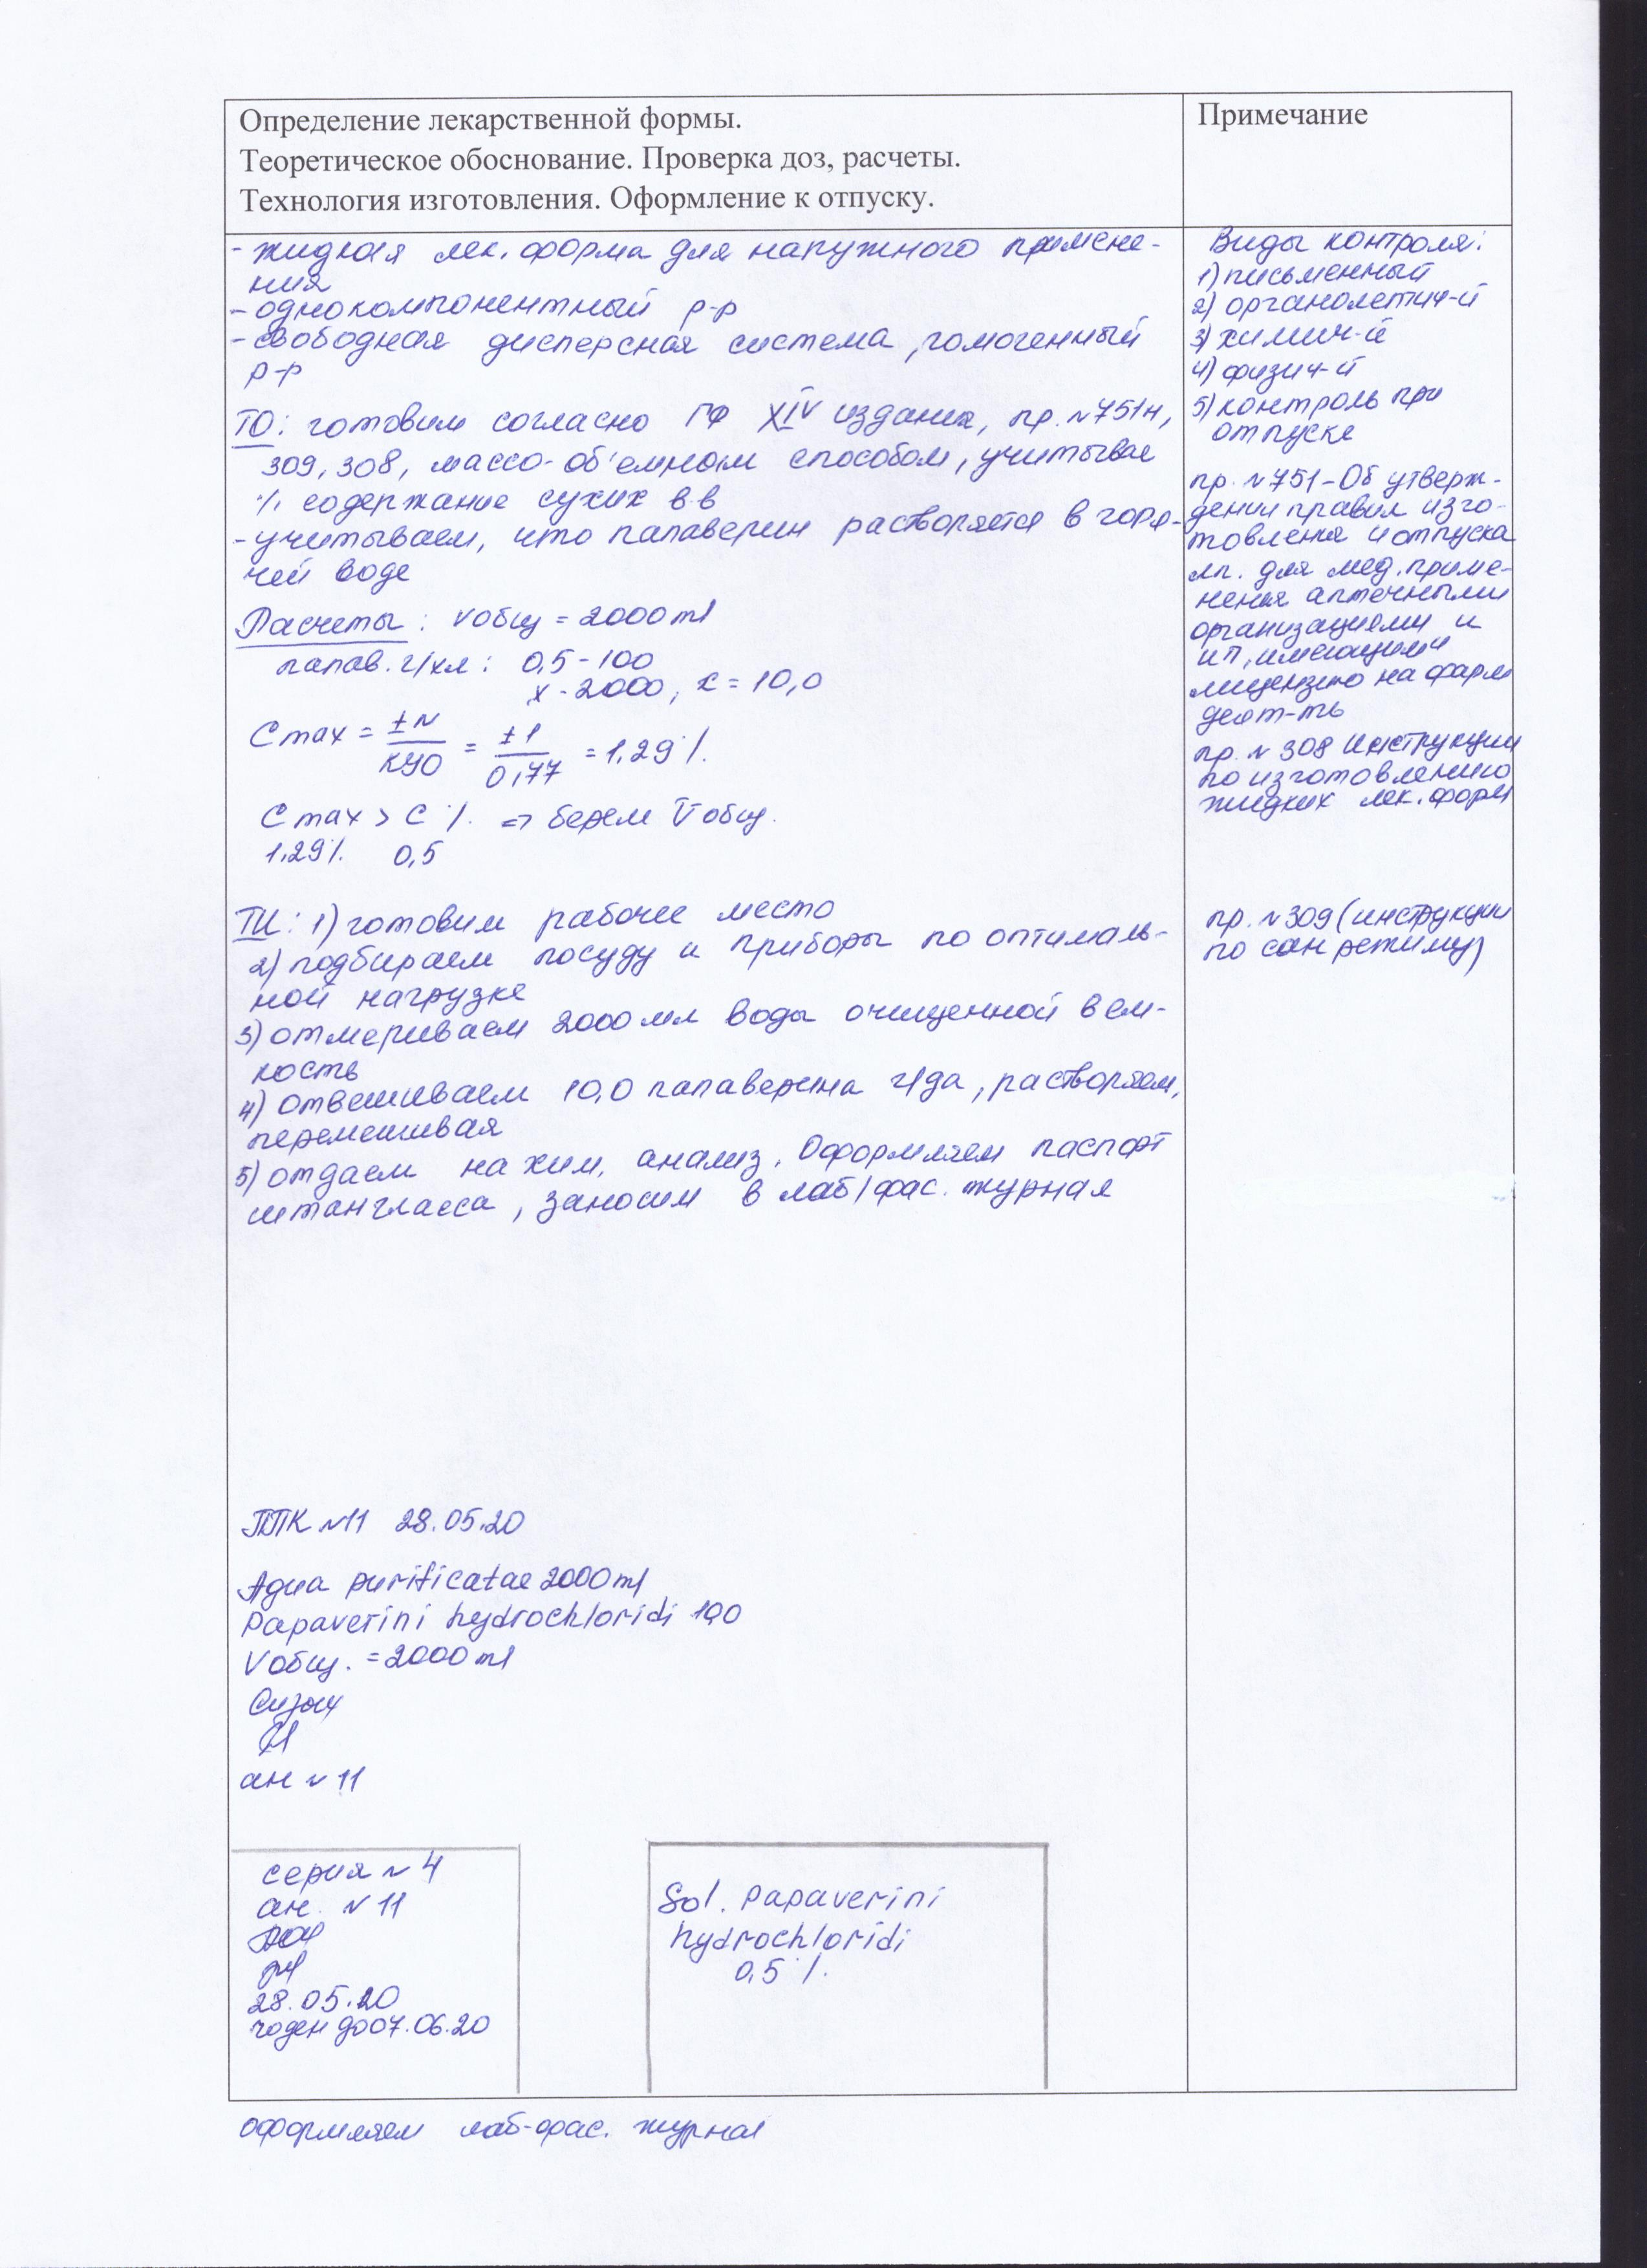 Определение лекарственной формы.
Теоретическое обоснование. Проверка доз, расчеты.
Технология изготовления. Оформление к отпуску.
- жидкая лек. форма для наружного примене-
ния
- однокомпонентный р-р
- свободная дисперсная система, гомогенный
р-р
ТО: готовим согласно ГФ XIV издания, пр. №751н,
309, 308, массо-об'емным способом, учитывае
% содержание сухих в-в
- учитываем, что папаверин растворяется в горя-
чей воде
Расчеты: Vобщ = 2000 ml
папав. г/хл: 0,5 - 100
x - 2000, x = 10,0
C max = ±N / КУО = ±1 / 0,77 = 1,29%.
C max > C %. => берем Vобщ.
1,29%. 0,5
ТИ: 1) готовим рабочее место
2) подбираем посуду и приборы по оптималь-
ной нагрузке
3) отмериваем 2000 мл воды очищенной в ем-
кость
4) отвешиваем 10,0 папаверина г/да, растворяем,
перемешивая
5) отдаем на хим. анализ. Оформляем паспорт
штангласса, заносим в лаб/фас. журнал
ППК №11 28.05.20
Aqua purificatae 2000 ml
Papaverini hydrochloridi 10,0
Vобщ. = 2000 ml
ан №11
серия №4
ан. №11
28.05.20
годен до 07.06.20
Sol. Papaverini
hydrochloridi
0,5%.
оформляем лаб-фас. журнал
Примечание
Виды контроля:
1) письменный
2) органолептич-й
3) химич-й
4) физич-й
5) контроль при
отпуске
пр. №751 - Об утверж-
дении правил изго-
товления и отпуска
лп. для мед. приме-
нения аптечными
организациями и
ИП, имеющими
лицензию на фарм
деят-ть
пр. №308 Инструкции
по изготовлению
жидких лек. форм
пр. №309 (инструкции
по сан режиму)